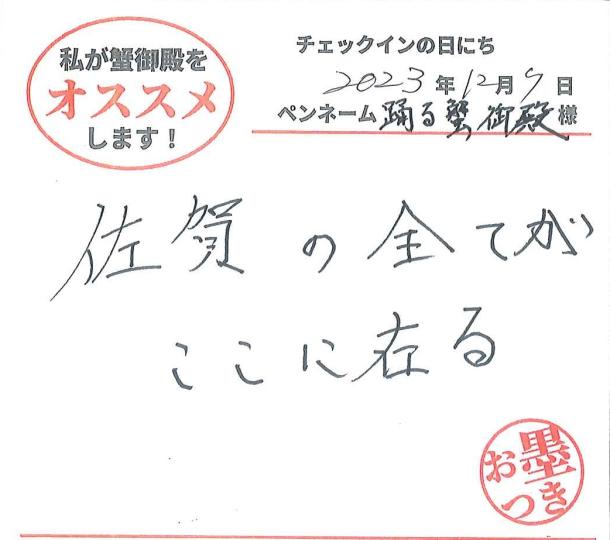 私が蟹御殿を
オススメ
します！
チェックインの日にち
2023年12月9日
ペンネーム 踊る蟹御殿様
佐賀の全てが
ここに在る
お墨
つき